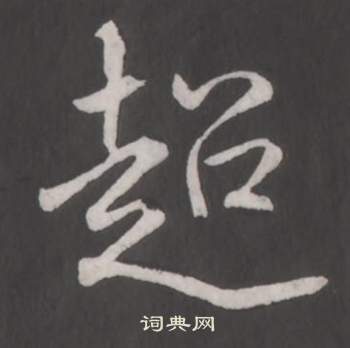 超
词典网